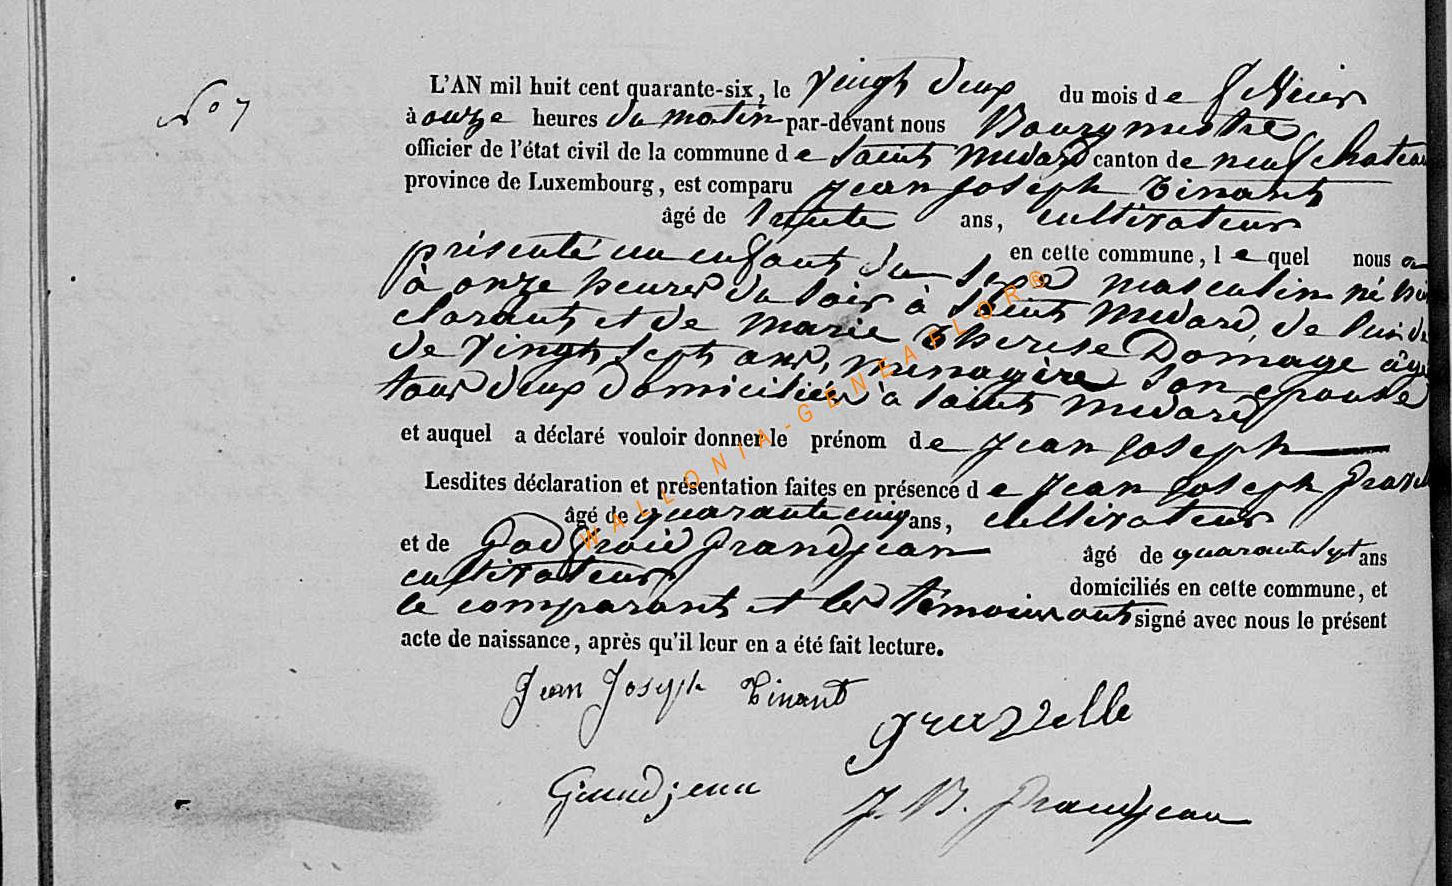 No 7
L'AN mil huit cent quarante-six, le vingt deux du mois de février
à onze heures du matin par-devant nous Bourgmestre
officier de l'état civil de la commune de Saint Médard canton de neufchateau
province de Luxembourg, est comparu Jean Joseph Tinant
âgé de trente ans, cultivateur
en cette commune, lequel nous a
présenté un enfant du sexe masculin né hier
à onze heures du soir à Saint Médard, de lui dé
clarant et de Marie Thérèse Domage âgée
de vingt sept ans, ménagère son épouse
tous deux domiciliés à Saint Médard
et auquel a déclaré vouloir donner le prénom de Jean Joseph
Lesdites déclaration et présentation faites en présence de Jean Joseph
âgé de quarante cinq ans, cultivateur
et de Godfroid Grandjean âgé de quarante sept ans
cultivateurs domiciliés en cette commune, et
le comparant et les témoins ont signé avec nous le présent
acte de naissance, après qu'il leur en a été fait lecture.
Jean Joseph Tinant
Grazelle
Grandjean
J. B. Grandjean
WALLONIA-GENEAFLOR®